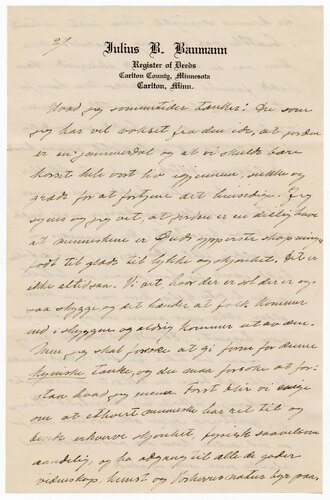 2/
Julius B. Baumann
Register of Deeds
Carlton County, Minnesota
Carlton, Minn.
Hvad jeg sommetider tænker: Du som
jeg har vel vokset fra den ide, at jorden
er en jammerdal og at vi skulde bare
korset hele vort liv igjennem, sukke og
græde for at fortjene det hinsidige. Jeg
synes og jeg vet, at jorden er en deilig have
at menneskene er Guds ypperste skapninger
født til glæde til lykke og skjønhet. Det er
ikke altid saa. Vi vet hvor der er sol der er og
saa skygge, og det hænder at folk kommer
ind i skyggen og aldrig kommer ut av den.
Men jeg skal forsøke at gi form for denne
tanke, og du maa forsøke at for-
staa hvad jeg mener. Først blir vi enige
om at ethvert menneske har ret til og
burde erhverve skjønhet, fysisk saavelsom
aandelig, og ha adgang til alle de goder
videnskap, kunst og Vorherres natur byr paa,